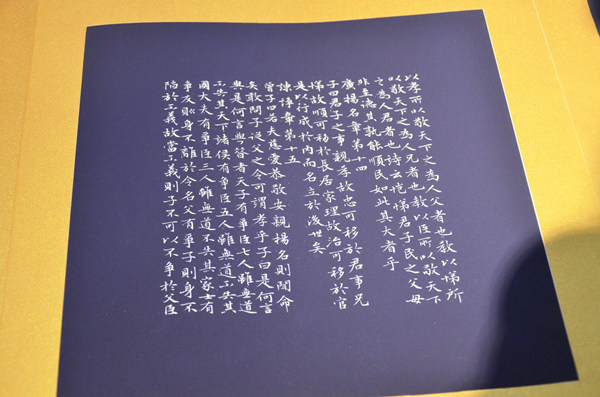 以孝所以敬天下之為人父者也教以悌所
以敬天下之為人兄者也教以臣所以敬天下
之為人君者也詩云愷悌君子民之父母
非至德其孰能順民如此其大者乎
廣揚名章第十四
子曰君子之事親孝故忠可移於君事兄
悌故順可移於長居家理故治可移於官
是以行成於內而名立於後世矣
諫諍章第十五
曾子曰若夫慈愛恭敬安親揚名則聞命
矣敢問子從父之令可謂孝乎子曰是何言
與是何言與昔者天子有爭臣七人雖無道
不失其天下諸侯有爭臣五人雖無道不失其
國大夫有爭臣三人雖無道不失其家士有
爭友則身不離於令名父有爭子則身不
陷於不義故當不義則子不可以不爭於父臣